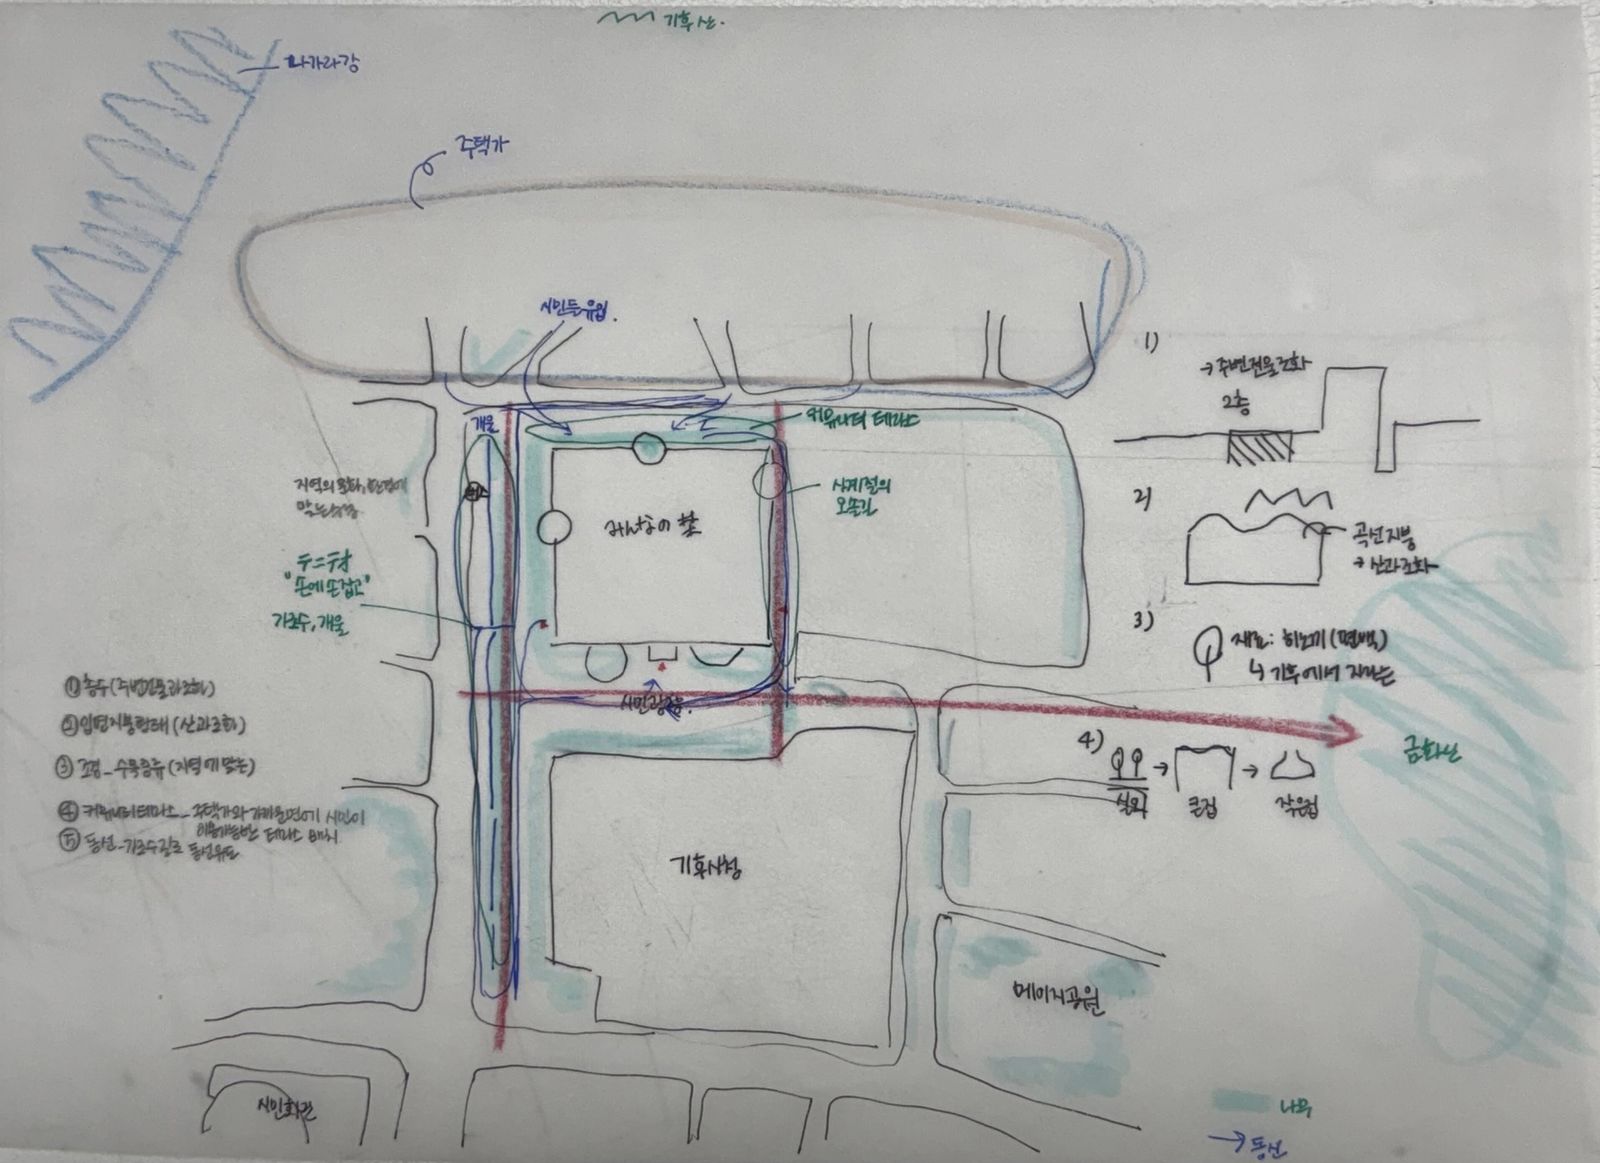 기후산.
나가라강
주택가
시민들유입.
개울
커뮤니티 테라스
사계절의
오솔길
みんなの 森
지역의
"손에 손잡고"
가로수, 개울
시민광장
기후시청
메이지공원
시민회관
금화산
나무
동선
① 층수(주변건물과조화)
② 입면지붕형태(산과조화)
③ 조경_수목종류(지역에 맞는)
④ 커뮤니티테라스_주택가와 가까운면에 시민이
이용가능한 테라스 배치
⑤ 동선_가로수길로 동선유도
1)
→주변건물조화
2층
2)
곡선지붕
→산과조화
3)
재료: 히노끼(편백)
↳ 기후에서 자라는
4)
실외
→
큰집
→
작은집